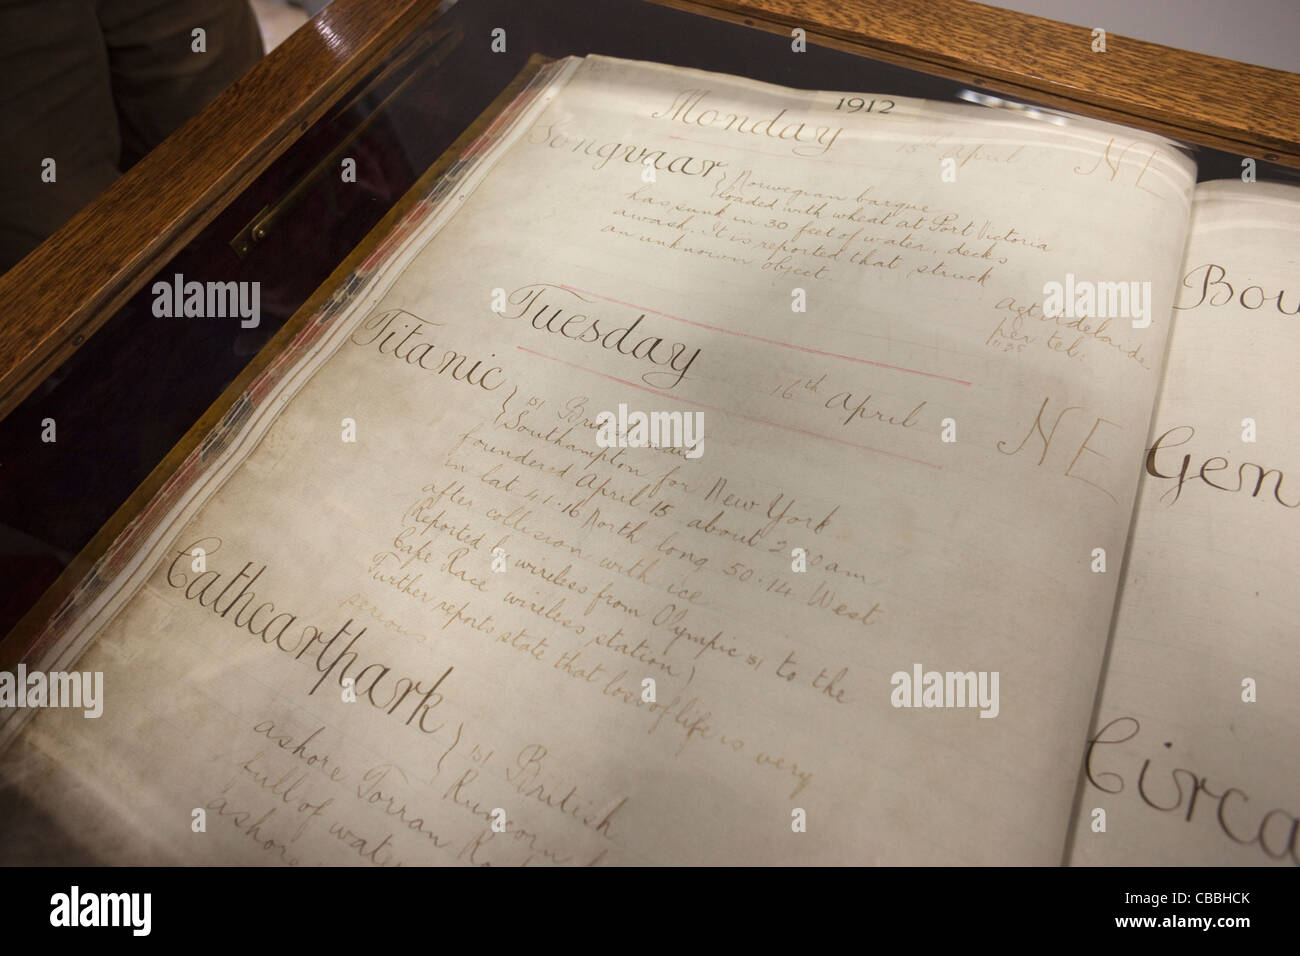 1912
Monday 15th April NE
Songvaar } Norwegian barque
loaded with wheat at Port Victoria
has sunk in 30 feet of water, decks
awash. It is reported that struck
an unknown object
Agt Adelaide
per tel:
11.35
Tuesday 16th April NE
Titanic } British mail
Southampton for New York
foundered April 15 about 2.20 am
in lat 41.16 North long 50.14 West
after collision with ice
(Reported by wireless from Olympic to the
Cape Race wireless station)
Further reports state that loss of life is very
serious
Cathcartpark } British
Runcorn
ashore Torran
full of water
Bou
Gen
Circa
alamy
Image ID: CBBHCK
www.alamy.com